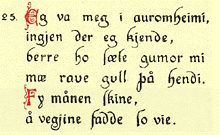 25. Eg va meg i auromheimi,
ingjen der eg kjende,
berre ho sæle gumor mi
mæ rave gull på hendi.
Fy månen skine,
å vegjine fadde so vie.